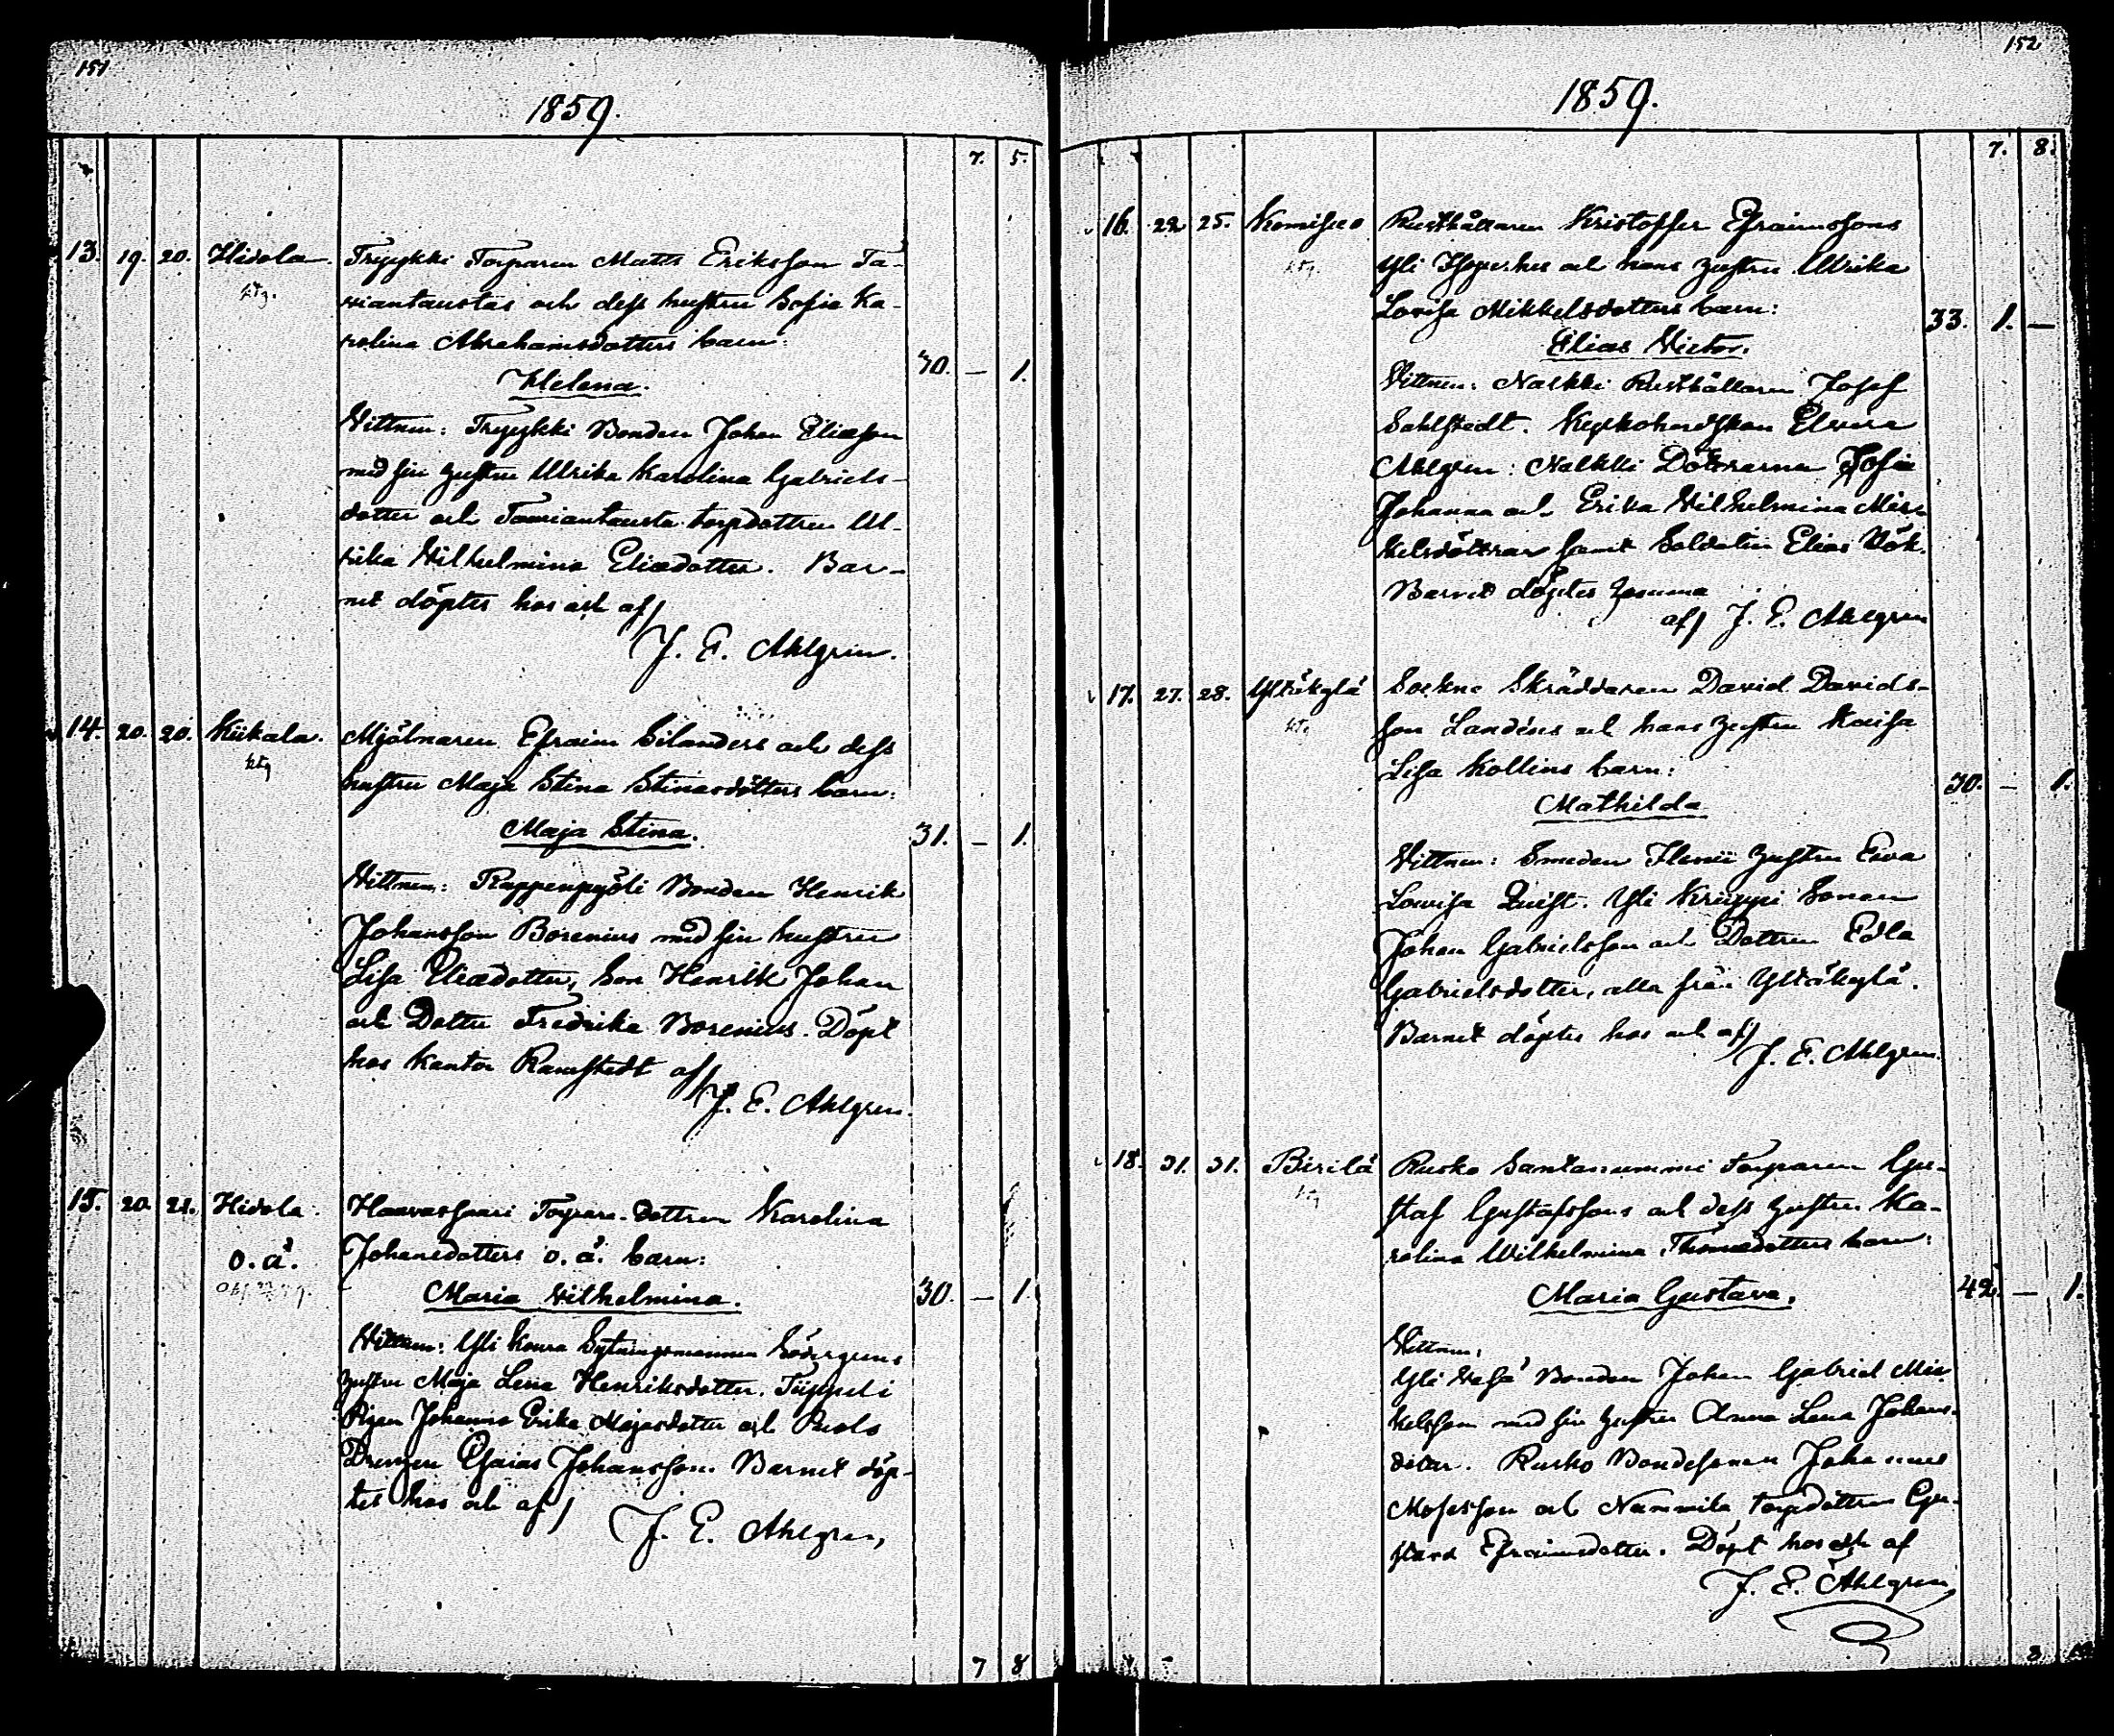 151
1859.
7. 5.
13. 19. 20. Hidola. Tryykki Torparen Matts Eriksson Ta-
ktg. viantaustas och dess hustru Sofia Ka-
rolina Abrahamsdotters barn:
Helena. 30. — 1.
Vittnen: Tryykki Bonden Johan Eliasson
med sin hustru Ulrika Karolina Gabriels-
dotter och Taviantausta torpdottren Ul-
rika Wilhelmina Eliædotter. Bar-
net döptes hos och af/
J. E. Ahlgren.
14. 20. 20. Kiikala. Mjölnaren Efraim Silanders och dess
ktg hustru Maja Stina Stinasdotters barn:
Maja Stina. 31. — 1.
Vittnen: Rappenpyöli Bonden Henrik
Johansson Borenius med sin hustru
Lisa Eliædotter, Son Henrik Johan
och Dotter Fredrika Borenius. Döpt
hos Kantor Ramstedt af/
J. E. Ahlgren.
15. 20. 21. Hidola. Haavassuari Torpare-dottren Karolina
o. ä. Johansdotters o. ä. barn:
Maria Wilhelmina. 30. — 1.
Vittnen: Yli Koura Sytningsmannen Södergrens
hustru Maja Lena Henriksdotter.
Pigan Johanna Erika Majasdotter och
Drengen Esaias Johansson. Barnet döp-
tes hos och af/
J. E. Ahlgren,
7 8
152
1859.
7. 8.
16. 22. 25. Rusthållaren Kristoffer Efraimssons
ktg. Yli och hans hustru Ulrika
Lovisa Mikkelsdotters barn:
Elias Victor. 33. 1. —
Vittnen: Nalkki Rusthållaren Josef
Sahlstedt. Elvira
Ahlgren: Nalkki Döttrarna Sofia
Johanna och Erika Wilhelmina Mic-
kelsdöttrar samt Soldaten Elias Väk.
Barnet döptes hemma
af/ J. E. Ahlgren
17. 27. 28. Yltäkylä Sockne Skräddaren David Davids-
ktg. son Landéns och hans hustru Kaisa
Lisa Kollins barn:
Mathilda 30. — 1.
Vittnen: Smeden hustru Eva
Lovisa Quist. Yli Sonen
Johan Gabrielsson och Dottren Edla
Gabrielsdotter, alla från Yltäkylä.
Barnet döptes hos och af/
J. E. Ahlgren.
18. 31. 31. Birilä Rusko Santanummi Torparen Gu-
ktg staf Gustafssons och dess hustru Ka-
rolina Wilhelmina Thomædotters barn:
Maria Gustava. 42. — 1.
Vittnen:
Yli Bonden Johan Gabriel Mic-
kelsson med sin hustru Anna Lena Johans-
dotter. Rusko Bondesonen Johannes
Mosesson och Nummila torpdottren Gu-
stava Efraimsdotter. Döpt hos och af
J. E. Ahlgren